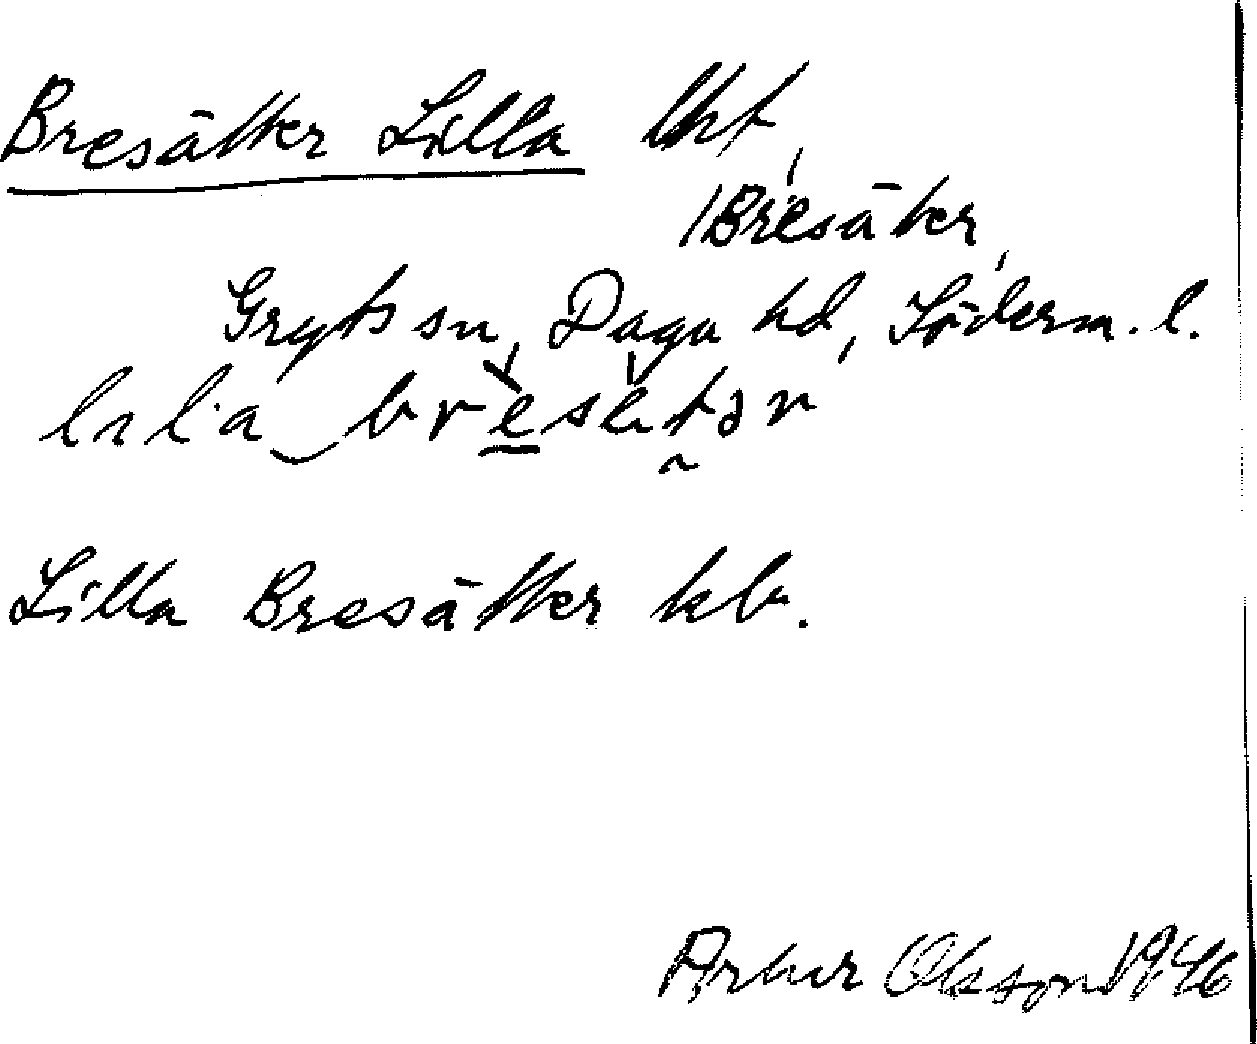 Bresätter Lilla lht,
/Bresäter,
Gryts sn, Daga hd, Söderm. l.
lɩla bresetər
Lilla Bresätter kb.
Artur Olsson 1946